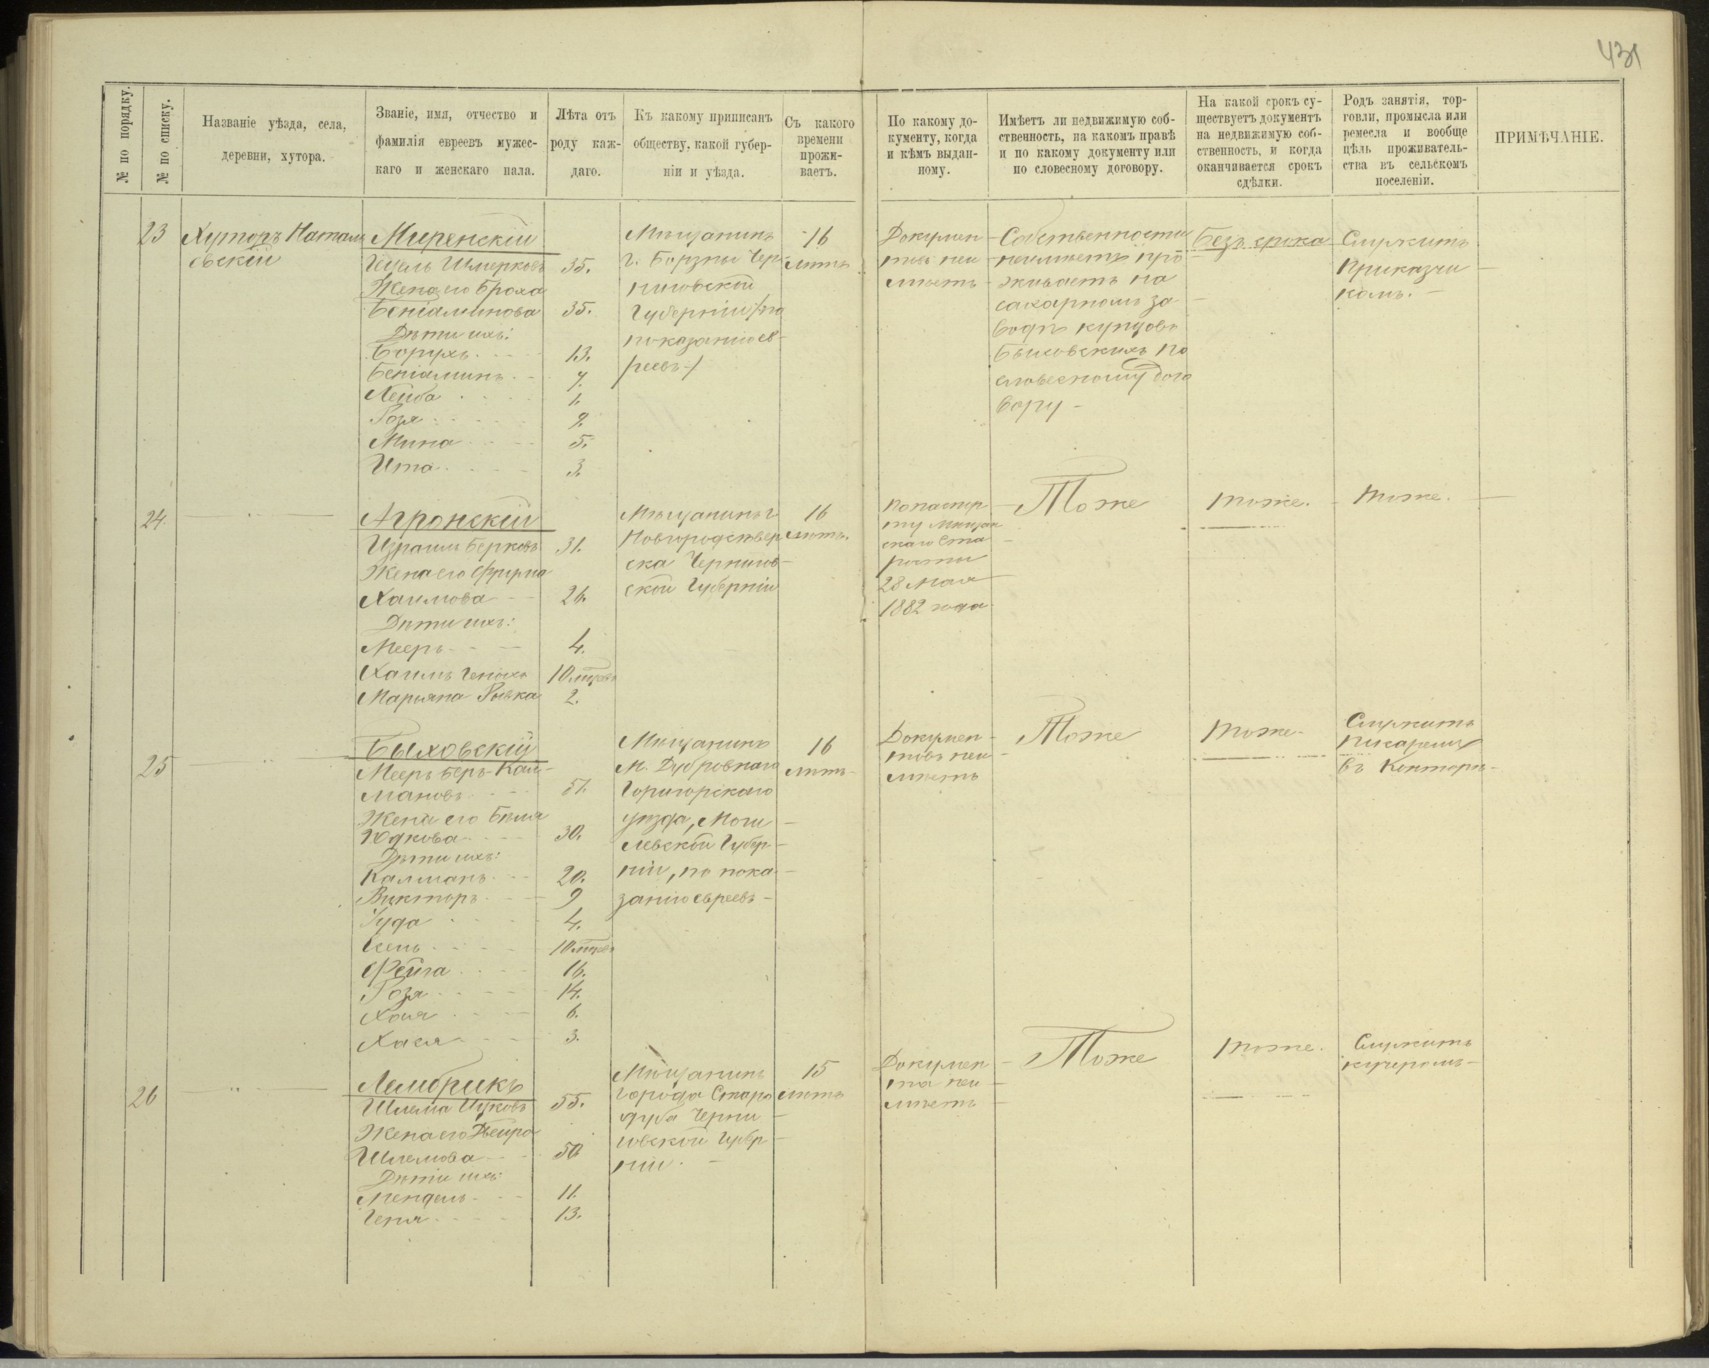 431
№ по порядку.
№ по списку.
Названіе уѣзда, села,
деревни, хутора.
Званіе, имя, отчество и
фамилія евреевъ мужес-
каго и женскаго пала.
Лѣта отъ
роду каж-
даго.
Къ какому приписанъ
обществу, какой губер-
ніи и уѣзда.
Съ какого
времени
прожи-
ваетъ.
По какому до-
кументу, когда
и кѣмъ выдан-
ному.
Имѣетъ ли недвижимую соб-
ственность, на какомъ правѣ
и по какому документу или
по словесному договору.
На какой срокъ су-
ществуетъ документъ
на недвижимую соб-
ственность, и когда
оканчивается срокъ
сдѣлки.
Родъ занятія, тор-
говли, промысла или
ремесла и вообще
цѣль проживатель-
ства въ сельскомъ
поселеніи.
ПРИМѢЧАНІЕ.
23
Хуторъ Натал
евскій
Миренскій
Шмерковъ 35.
Жена его Броха
Беніаминова 35.
Дѣти ихъ:
Борухъ 13.
Беніаминъ 7.
Лейба 1.
Розя 9.
Мина 5.
Ита 3.
Мѣщанинъ
г. Борзны Чер
ниговской
Губерніи /по
показанію ев-
реевъ/
16
лѣтъ
Докумен
та не и
мѣетъ
Собственности
неимѣетъ про
живаетъ на
сахарномъ за
водѣ купцовъ
по
словесному дого
вору
Безъ срока
Служитъ
Приказчи
комъ.
24.
"
Агронскій
Израиль Берковъ 31.
Жена его Фрума
Хаимова 26.
Дѣти ихъ:
Мееръ 4.
Хаимъ Генохъ 10 мѣсяц
Марьяна Ривка 2.
Мѣщанинъ г
Новгородсѣвер
ска Чернигов-
ской Губерніи
16
лѣтъ.
По паспор
ту Мѣщан
скаго Ста
росты
28 Мая
1882 года
Тоже
тоже.
тоже.
25
"
Быховскій
Мееръ Беръ Кал-
мановъ 51.
Жена его Бейля
Юдкова 30.
Дѣти ихъ:
Калманъ 20.
Викторъ 9
Іуда 4.
10 мѣсяц
Фейга 16.
Розя 14.
Хая 6.
Хася 3.
Мѣщанинъ
м. Дубровнаго
Горигорскаго
уѣзда, Моги
левской Губер-
ніи, по пока
занію евреевъ
16
лѣтъ
Докумен-
товъ не и
мѣетъ
Тоже
тоже
Служитъ
Писаремъ
въ Конторѣ
26
"
Лемберикъ
Шлема Ицковъ 55.
Жена его Двейра
Шлемова 50
Дѣти ихъ:
Мендель 11.
Геня 13.
Мѣщанинъ
города Старо
дуба Черни
говской Губер
ніи.
15
лѣтъ
Докумен
та не и
мѣетъ
Тоже
тоже.
Служитъ
кучеромъ